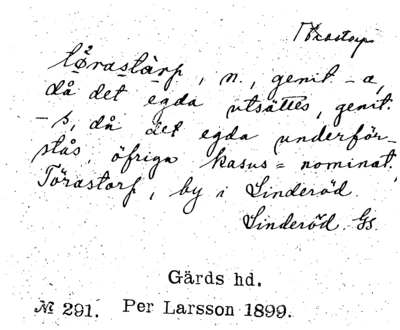 Törastorp
tǿrastàrp, n., genit. -a,
då det egda utsättes, genit.
-s, då det egda underför-
stås, öfriga kasus = nominat.
Törastorp, by i Linderöd.
Linderöd. Gs.
Gärds hd.
№ 291. Per Larsson 1899.